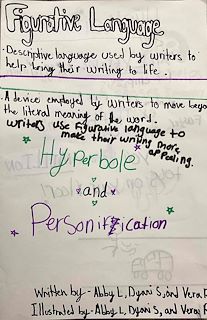 Figurative Language
• Descriptive language used by writers to
help bring their writing to life.
• A device employed by writers to move beyond
the literal meaning of the word.
writers use figurative language to
make their writing more
appealing.
Hyperbole
and
Personification
Written by - Abby L, Dyani S, and Vera
Illustrated by - Abby L, Dyani S, and Vera